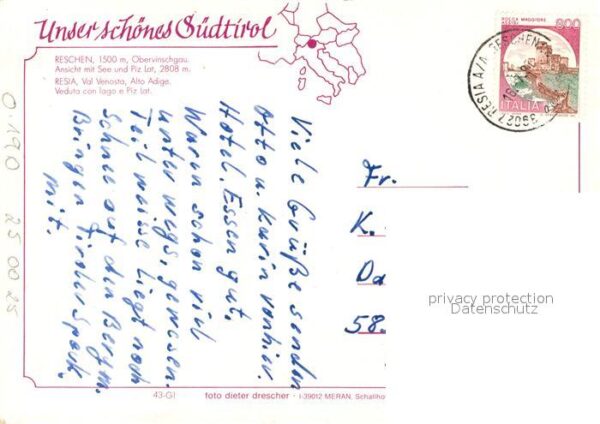 Unser schönes Südtirol
RESCHEN, 1500 m, Obervinschgau.
Ansicht mit See und Piz Lat, 2808 m.
RESIA, Val Venosta, Alto Adige.
Veduta con lago e Piz Lat.
ROCCA MAGGIORE
800
ITALIA
39027 RESIA A/A RESCHEN
Viele Grüße senden
Otto u. Karin von hier.
Hotel, Essen gut.
Waren schon viel
unterwegs, gewesen.
Teilweise liegt noch
Schnee auf den Bergen.
Bringen Tiroler Speck
mit.
Fr.
K.
Da
58.
privacy protection
Datenschutz
0.190 25 00 25
43-GI
foto dieter drescher · I-39012 MERAN, Schallho